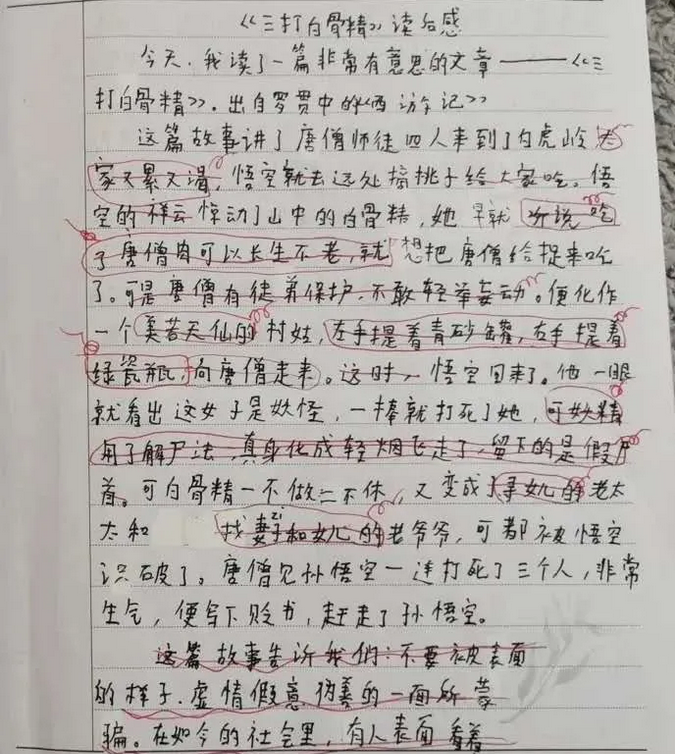 《三打白骨精》读后感
今天，我读了一篇非常有意思的文章——《三
打白骨精》。出自罗贯中的《西游记》
这篇故事讲了唐僧师徒四人来到了白虎岭，大
家又累又渴，悟空就去远处摘桃子给大家吃。悟
空的祥云惊动了山中的白骨精，她早就听说吃
了唐僧肉可以长生不老，就想把唐僧给捉来吃
了。可是唐僧有徒弟保护，不敢轻举妄动。便化作
一个美若天仙的村姑，左手提着青砂罐，右手提着
绿瓷瓶，向唐僧走来。这时，悟空回来了。他一眼
就看出这女子是妖怪，一棒就打死了她，可妖精
用了解尸法，真身化成轻烟飞走了，留下的是假尸
首。可白骨精一不做二不休，又变成了寻女儿的老太
太和 找妻子zi和女儿的老爷爷，可都被悟空
识破了。唐僧见孙悟空一连打死了三个人，非常
生气，便写下贬书，赶走了孙悟空。
这篇故事告诉我们：不要被表面
的样子、虚情假意伪善的一面所蒙
骗。在如今的社会里，有人表面看着